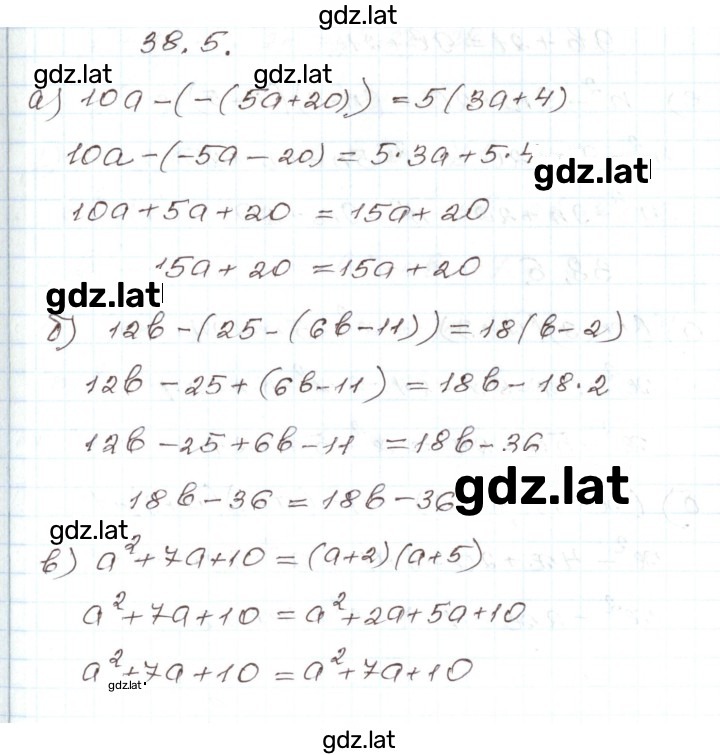 gdz.lat
38.5.
gdz.lat gdz.lat
а) 10a-(-(5a+20)) = 5(3a+4)
10a-(-5a-20) = 5·3a+5·4
gdz.lat
10a+5a+20 = 15a+20
15a+20 = 15a+20
gdz.lat
б) 12b-(25-(6b-11)) = 18(b-2)
12b-25+(6b-11) = 18b-18·2
12b-25+6b-11 = 18b-36
18b-36 = 18b-36
gdz.lat
gdz.lat
в) a²+7a+10 = (a+2)(a+5)
a²+7a+10 = a²+2a+5a+10
a²+7a+10 = a²+7a+10
gdz.lat
gdz.lat